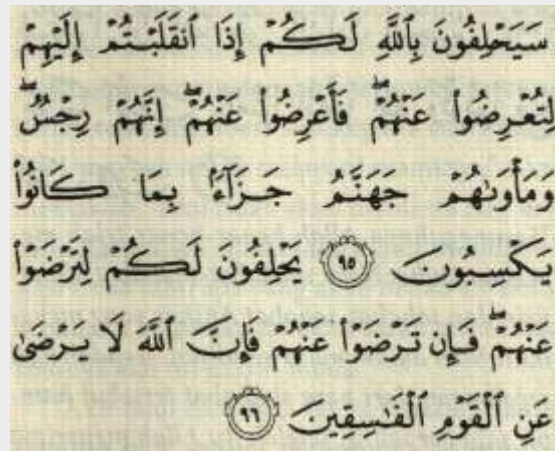 سَيَحْلِفُونَ بِٱللَّهِ لَكُمْ إِذَا ٱنقَلَبْتُمْ إِلَيْهِمْ
لِتُعْرِضُوا۟ عَنْهُمْ ۖ فَأَعْرِضُوا۟ عَنْهُمْ ۖ إِنَّهُمْ رِجْسٌ ۖ
وَمَأْوَىٰهُمْ جَهَنَّمُ جَزَآءًۢ بِمَا كَانُوا۟
يَكْسِبُونَ ٩٥ يَحْلِفُونَ لَكُمْ لِتَرْضَوْا۟
عَنْهُمْ ۖ فَإِن تَرْضَوْا۟ عَنْهُمْ فَإِنَّ ٱللَّهَ لَا يَرْضَىٰ
عَنِ ٱلْقَوْمِ ٱلْفَـٰسِقِينَ ٩٦